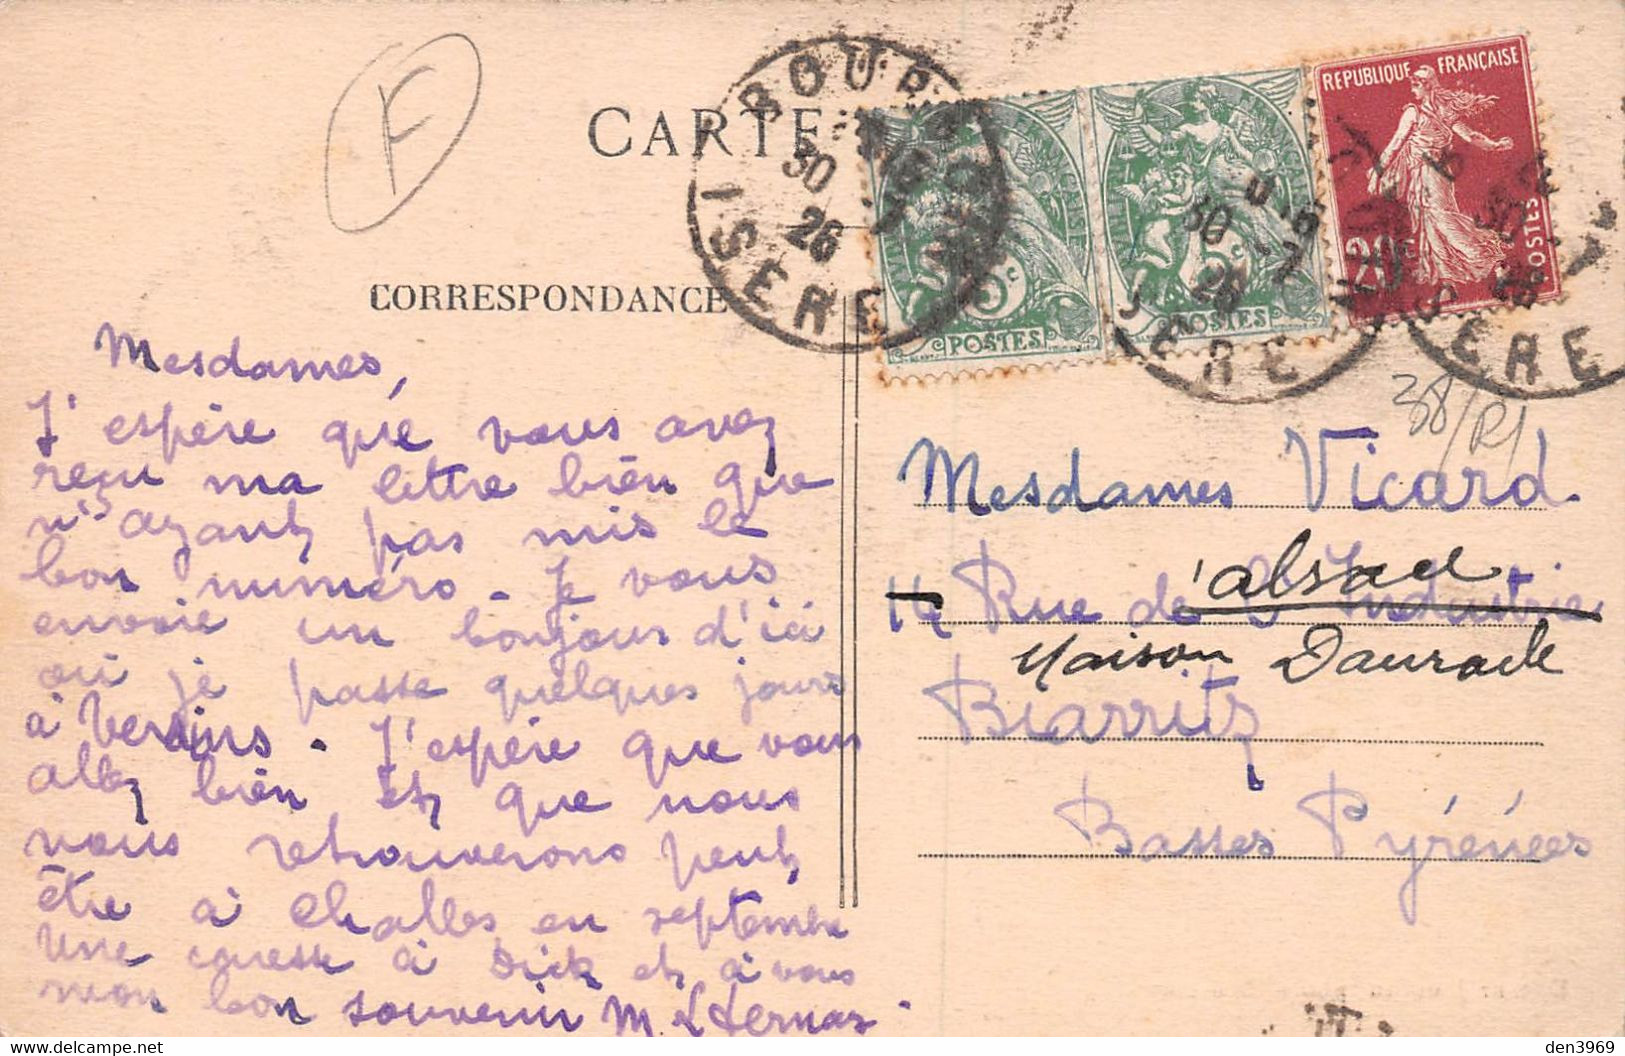 F
CARTE
CORRESPONDANCE
BOURGOIN
30 -7
26
ISERE
POSTES
5c
30 -7
26
ISERE
POSTES
REPUBLIQUE FRANÇAISE
20c
POSTES
30 -7
26
ISERE
38/R1
Mesdames,
J'espère que vous avez
reçu ma lettre bien que
n'ayant pas mis le
bon numéro - Je vous
envoie un bonjour d'ici
où je passe quelques jours
à Vertins. J'espère que vous
allez bien et que nous
nous retrouverons peut
être à Challes en septembre
Une caresse à Dick et à vous
mon bon souvenir M.
Mesdames Vicard
14 Rue de l'Industrie
alsace
Maison Daurade
Biarritz
Basses Pyrénées
den3969